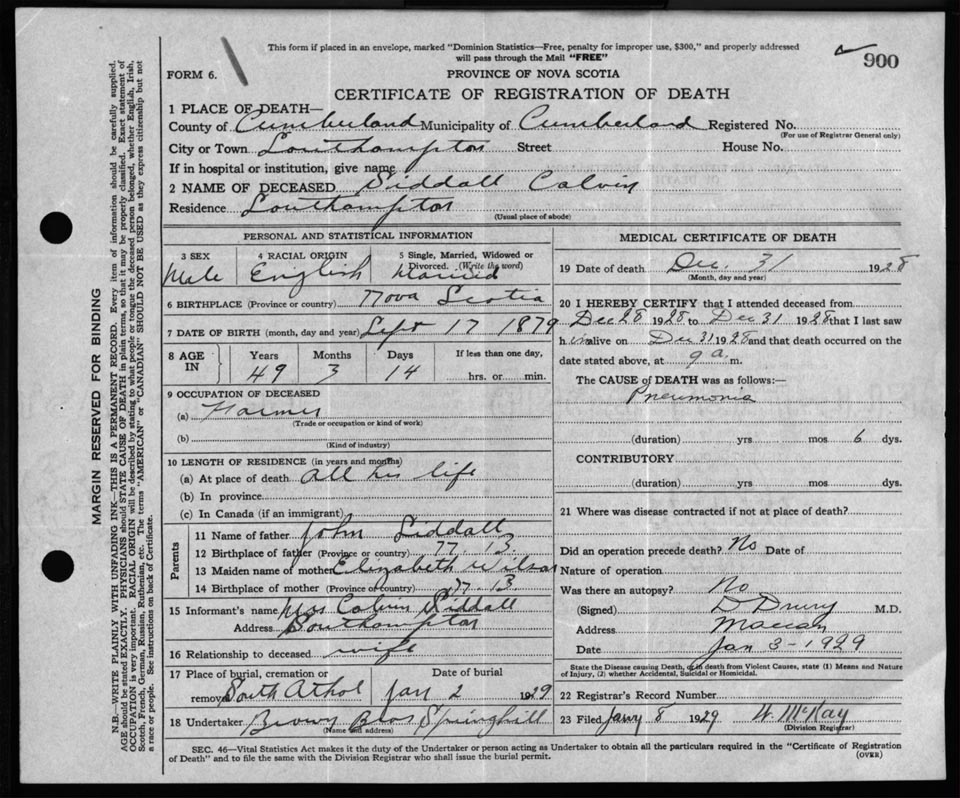 This form if placed in an envelope, marked "Dominion Statistics—Free, penalty for improper use, $300," and properly addressed
will pass through the Mail "FREE"
900
FORM 6.
PROVINCE OF NOVA SCOTIA
CERTIFICATE OF REGISTRATION OF DEATH
1 PLACE OF DEATH—
County of Cumberland Municipality of Cumberland Registered No.
(For use of Registrar General only)
City or Town Southampton Street House No.
If in hospital or institution, give name
2 NAME OF DECEASED Siddall Calvin
Residence Southampton
(Usual place of abode)
PERSONAL AND STATISTICAL INFORMATION
3 SEX 4 RACIAL ORIGIN 5 Single, Married, Widowed or
Divorced. (Write the word)
Male English Married
6 BIRTHPLACE (Province or country) Nova Scotia
7 DATE OF BIRTH (month, day and year) Sept 17 1879
8 AGE IN Years Months Days If less than one day,
49 3 14 hrs. or min.
9 OCCUPATION OF DECEASED
(a) Farmer
(Trade or occupation or kind of work)
(b)
(Kind of industry)
10 LENGTH OF RESIDENCE (in years and months)
(a) At place of death all his life
(b) In province
(c) In Canada (if an immigrant)
Parents
11 Name of father John Siddall
12 Birthplace of father (Province or country) N. B.
13 Maiden name of mother Elizabeth Wilson
14 Birthplace of mother (Province or country) N. B.
15 Informant's name Mrs Calvin Siddall
Address Southampton
16 Relationship to deceased wife
17 Place of burial, cremation or Date of burial
removal South Athol Jan 2 1929
18 Undertaker Brown Bros Springhill
(Name and address)
MEDICAL CERTIFICATE OF DEATH
19 Date of death Dec. 31 1928
(Month, day and year)
20 I HEREBY CERTIFY that I attended deceased from
Dec 28 1928 to Dec 31 1928 that I last saw
h im alive on Dec 31 1928 and that death occurred on the
date stated above, at 9 a. m.
The CAUSE of DEATH was as follows:—
Pneumonia
(duration) yrs mos 6 dys.
CONTRIBUTORY
(duration) yrs mos dys.
21 Where was disease contracted if not at place of death?
Did an operation precede death? No Date of
Nature of operation
Was there an autopsy? No
(Signed) D Drury M.D.
Address Maccan
Date Jan 3 - 1929
State the Disease causing Death, or in death from Violent Causes, state (1) Means and Nature
of Injury, (2) whether Accidental, Suicidal or Homicidal.
22 Registrar's Record Number
23 Filed Jany 8 1929 W. McKay
(Division Registrar)
SEC. 46—Vital Statistics Act makes it the duty of the Undertaker or person acting as Undertaker to obtain all the particulars required in the "Certificate of Registration
of Death" and to file the same with the Division Registrar who shall issue the burial permit.
(OVER)
MARGIN RESERVED FOR BINDING
N.B.—WRITE PLAINLY WITH UNFADING INK—THIS IS A PERMANENT RECORD. Every item of information should be carefully supplied.
AGE should be stated EXACTLY. PHYSICIANS should STATE CAUSE OF DEATH in plain terms, so that it may be properly classified. Exact statement of
OCCUPATION is very important. RACIAL ORIGIN will be described by stating to what people or tongue the deceased person belonged, whether English, Irish,
Scotch, French, German, Russian, Ruthenian, etc. The terms "AMERICAN" or "CANADIAN" SHOULD NOT BE USED as they express citizenship but not
a race or people. See instructions on back of Certificate.